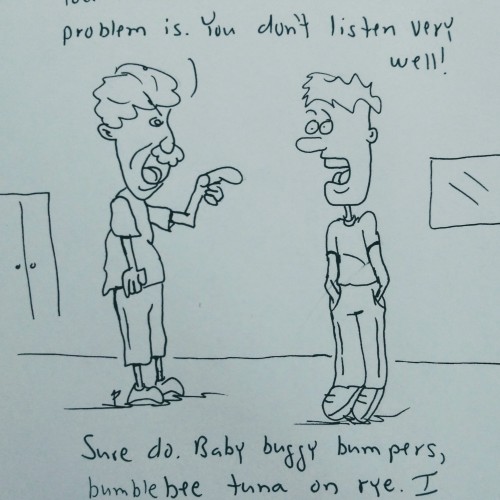 problem is. You don't listen very
well!
Sure do. Baby buggy bumpers,
bumblebee tuna on rye. I